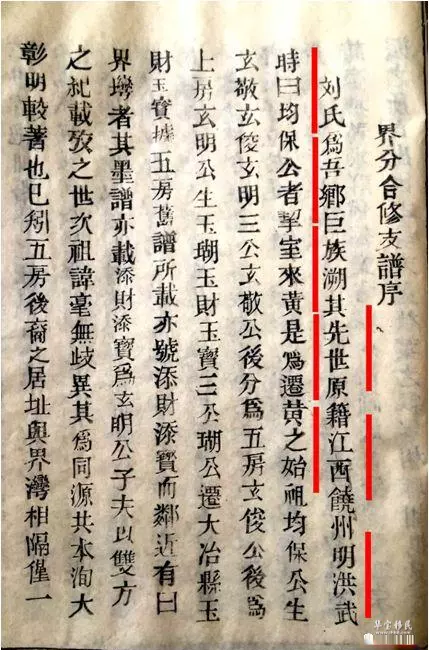 界分合修支譜序
刘氏爲吾鄉巨族溯其先世原籍江西饒州明洪武
時曰均保公者挈室來黃是爲遷黃之始祖均保公生
玄敬玄俊玄明三公玄敬公後分爲五房玄俊公後爲
上房玄明公生玉瑚玉財玉寶三公瑚公遷大冶縣玉
財玉寶據五房舊譜所載亦號添財添寶而鄰近有曰
界壪者其墨譜亦載添財添寶爲玄明公子夫以雙方
之紀載攷之世次祖諱毫無歧異其爲同源共本洵大
彰明較著也已矧五房後裔之居址與界灣相隔僅一
华宝移民